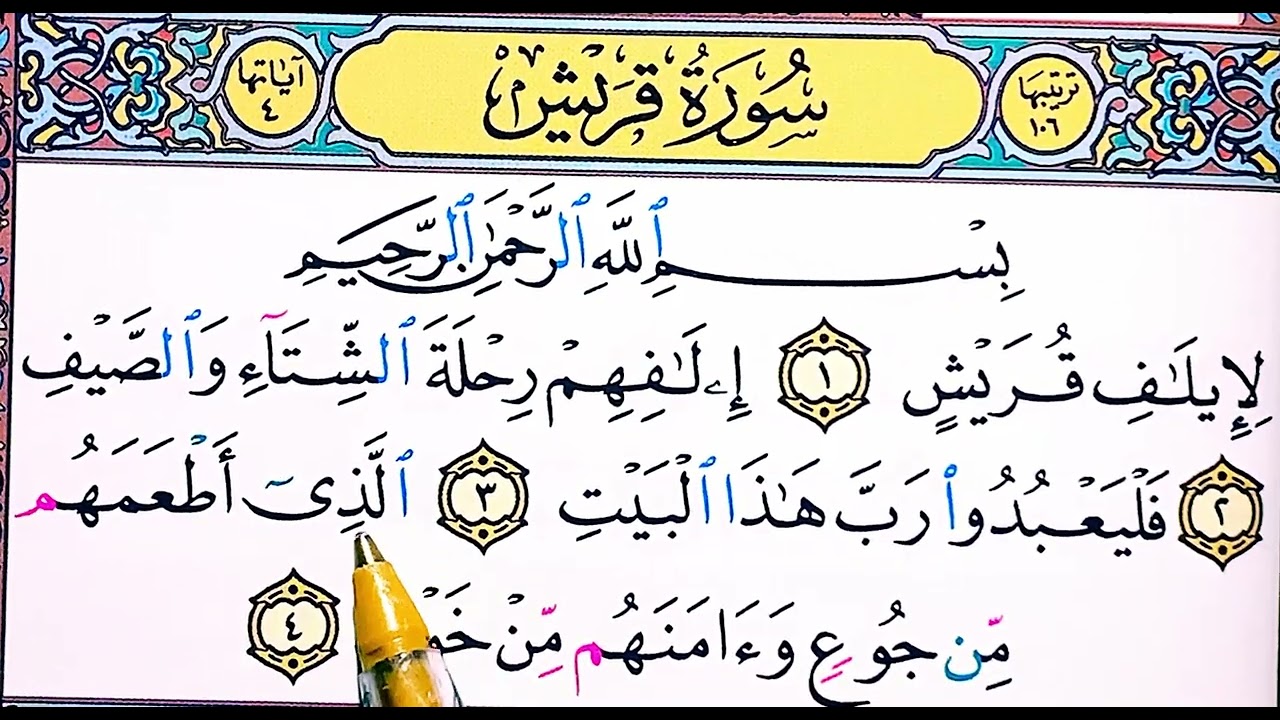 ترتيبها ١٠٦ سُورَةُ قُرَيْشٍ آياتها ٤
بِسْمِ ٱللَّهِ ٱلرَّحْمَٰنِ ٱلرَّحِيمِ
لِإِيلَٰفِ قُرَيْشٍ ١ إِۦلَٰفِهِمْ رِحْلَةَ ٱلشِّتَآءِ وَٱلصَّيْفِ
٢ فَلْيَعْبُدُوا۟ رَبَّ هَٰذَا ٱلْبَيْتِ ٣ ٱلَّذِىٓ أَطْعَمَهُم
مِّن جُوعٍ وَءَامَنَهُم مِّنْ ٤